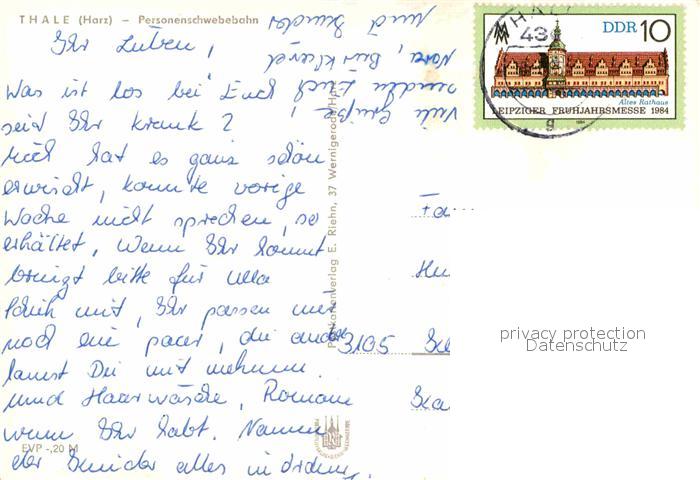 THALE (Harz) – Personenschwebebahn
Ihr Lieben,
Was ist los bei Euch
seid Ihr krank?
mich hat es ganz schön
erwischt, konnte vorige
Woche nicht sprechen, so
erkältet, Wenn Ihr kommt
bringt bitte für Ulla
mit, Ihr passen nur
noch ein paar, die
kannst Du mit nehmen.
und Haarwäsche, Romane
wenn Ihr habt.
der Kinder alles in Ordnung.
Viele Grüße
senden Euch
und
Kinder
EVP -,20 M
Postkartenverlag E. Riehn, 37 Wernigerode/Harz
DDR 10
Altes Rathaus
LEIPZIGER FRÜHJAHRSMESSE 1984
1984
THALE
43
g
Fa
3105
privacy protection
Datenschutz